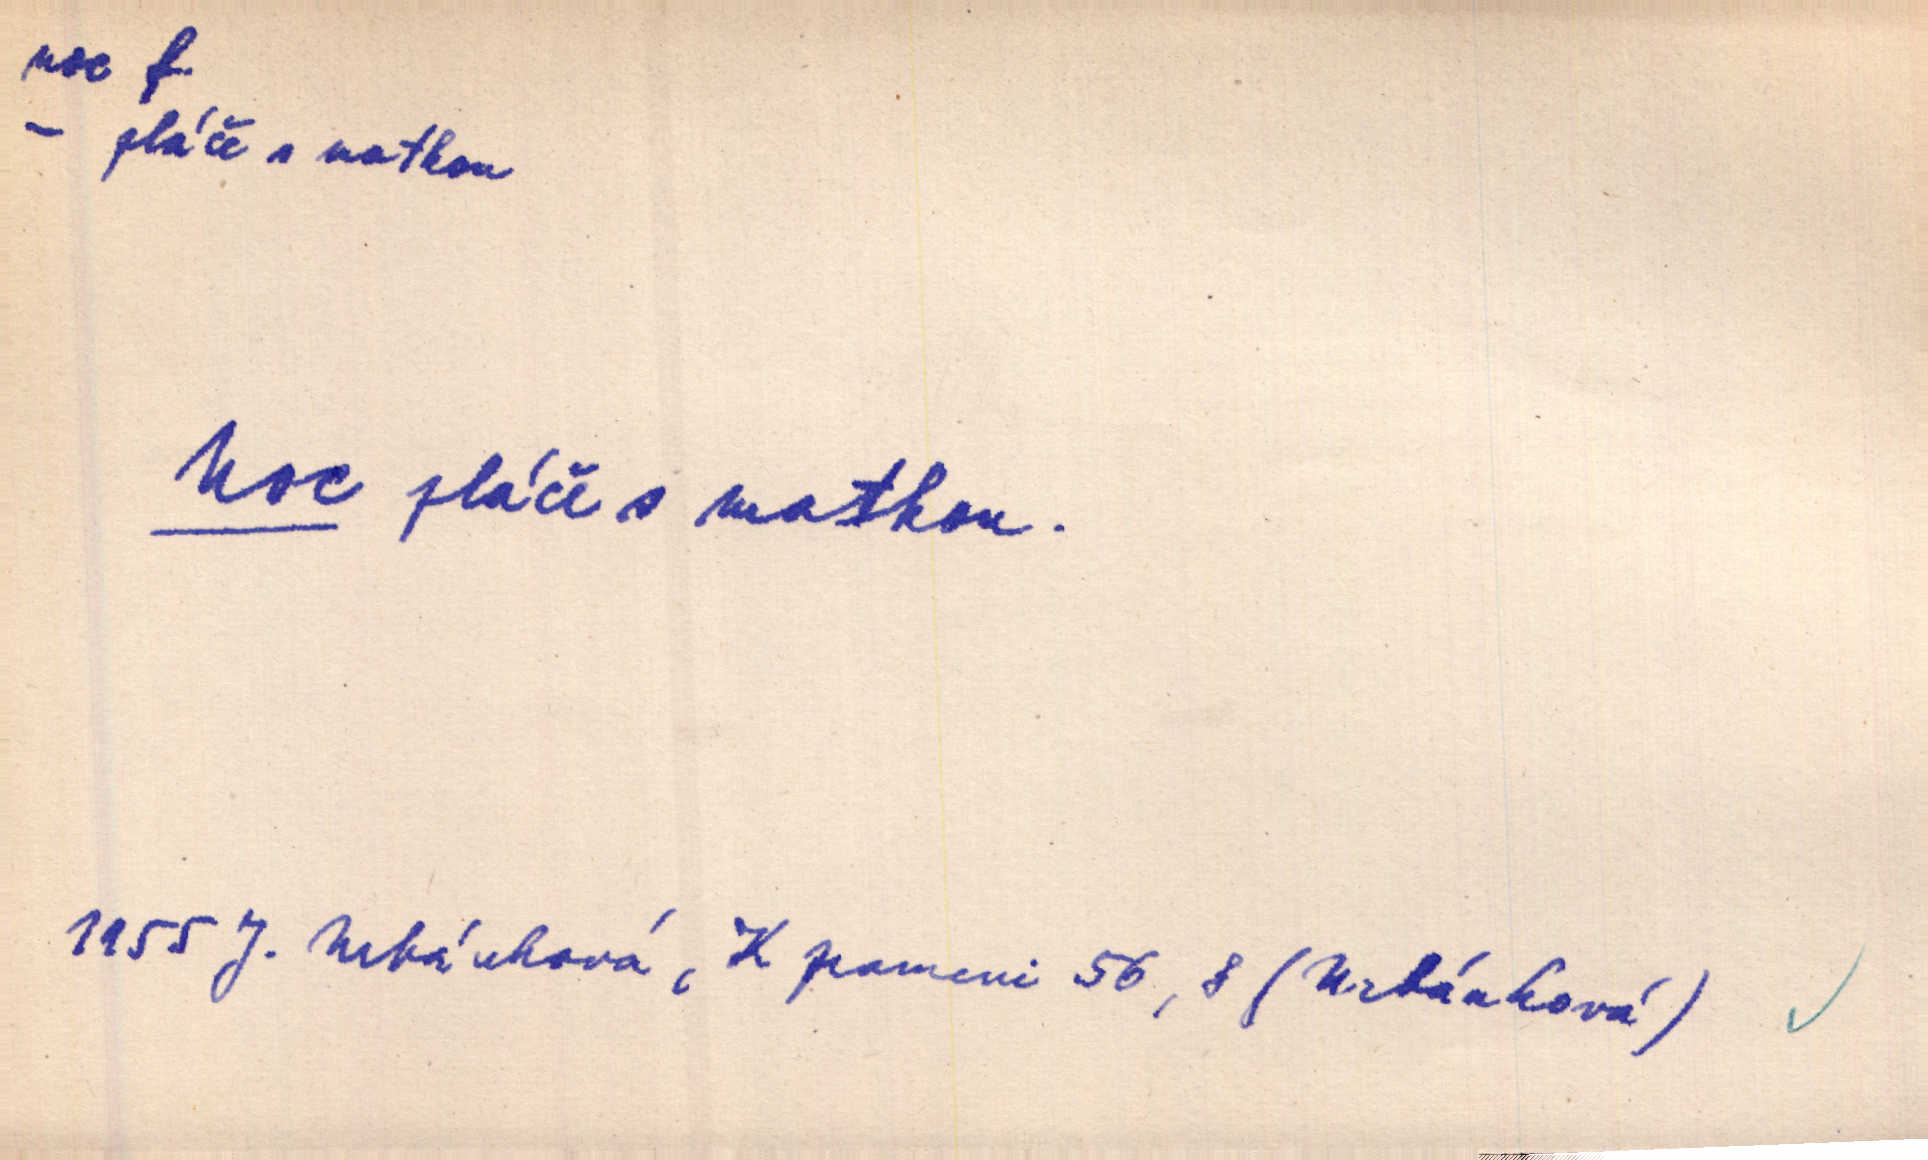 noc f.
– pláče s matkou
Noc pláče s matkou.
1955 J. Urbánková, K prameni 56, 8 (Urbánková)